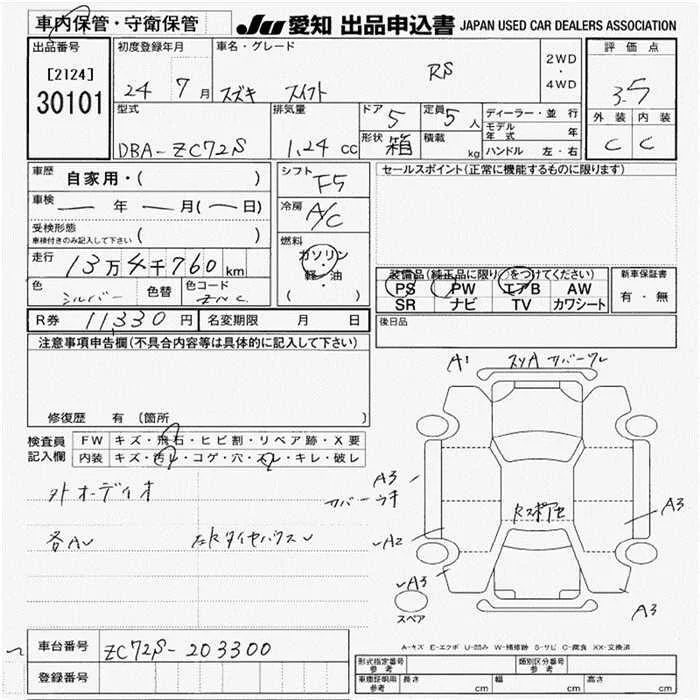 車内保管・守衛保管
JU 愛知 出品申込書 JAPAN USED CAR DEALERS ASSOCIATION
出品番号 初度登録年月 車名・グレード 評価点
[2124] 2WD・4WD
30101 24 7月 スズキ スイフト RS 3.5
型式 排気量 ドア 5 定員 5人 ディーラー・並行 外装 内装
モデル年式 年
DBA-ZC72S 1.24cc 形状 箱 積載 kg ハンドル 左・右 C C
車歴 自家用・( ) シフト F5 セールスポイント(正常に機能するものに限ります)
車検 ー年 ー月(ー日) 冷房 A/C
受検形態
車検付きのみ記入して下さい ( )
走行 13万4千760km 燃料 ガソリン・軽・油 ( )
装備品(純正品に限り○をつけてください) 新車保証書
PS PW エアB AW 有・無
SR ナビ TV カワシート
色 シルバー 色替 色コード ZNC
R券 11,330円 名変期限 月 日 後日品
注意事項申告欄(不具合内容等は具体的に記入して下さい)
修復歴 有(箇所 )
検査員記入欄 FW キズ・飛石・ヒビ割・リペア跡・X要
内装 キズ・汚レ・コゲ・穴・スレ・キレ・破レ
外オーディオ
各A
A1
A3
A3
A2
A3
A3
スペア
A-キズ E-エクボ U-凹み W-補修跡 S-サビ C-腐食 XX-交換済
車台番号 ZC72S-203300
登録番号
形式指定番号 参考 類別区分番号 参考
車庫証明用 参考 長さ cm 幅 cm 高さ cm